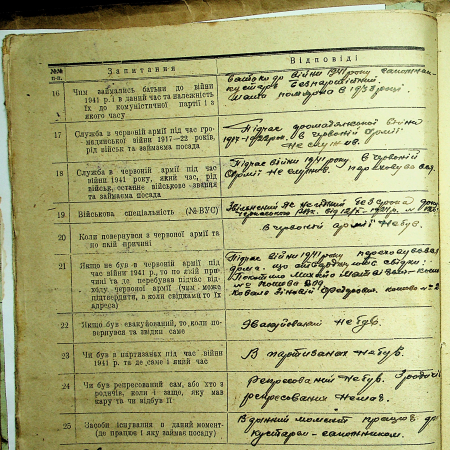 №№ п-п.
Запитання
Відповіді
16
Чим займались батьки до війни
1941 р. і в даний час та належність
їх до комуністичної партії і з
якого часу
Батько до війни 1941 року
кустарь безпартійний.
Мати померла в 1938 році.
17
Служба в червоній армії під час гро-
мадянської війни 1917—22 років,
рід військ та займаєма посада
Підчас громадянської війни
1917-1922 рок. в червоній Армії
не служив.
18
Служба в червоній армії під час
війни 1941 року, який час, рід
військ, останнє військове звання
та займаєма посада
Підчас війни 1941 року в червоній
Армії не служив.
19
Військова спеціальність (№ ВУС)
20
Коли повернувся з червоної армії та
по якій причині
В червоній армії небув.
21
Якщо не був в червоній армії під
час війни 1941 р., то по якій при-
чині та де перебував підчас від-
ходу червоної армії (чим може
підтвердити, а коли свідками то їх
адреса)
Підчас війни 1941 року
дома
22
Якщо був евакуйований, то коли по-
вернувся та звідки саме
Эвакуйований небув.
23
Чи був в партизанах під час війни
1941 р. та де саме і який час
В партизанах небув.
24
Чи був репресований сам, або хто з
родичів, коли і защо, яку мав
кару та чи відбув її
Репресований небув. З родичів
репресованих немав.
25
Засоби існування в даний момент
(де працює і яку займає посаду)
В даний момент працюв
кустарем-сапожником.